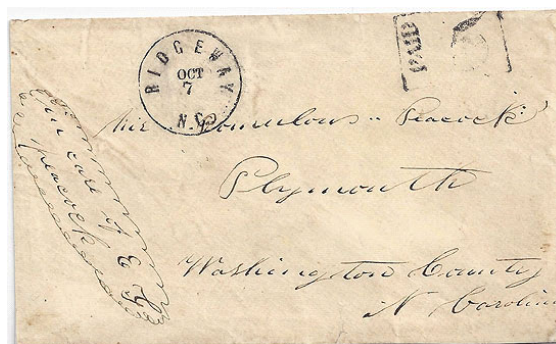 RIDGEWAY
OCT
7
N.C.
PAID
Mr. Romulous Peacock
Plymouth
Washington County
N Carolina
In care of E G
Peacock